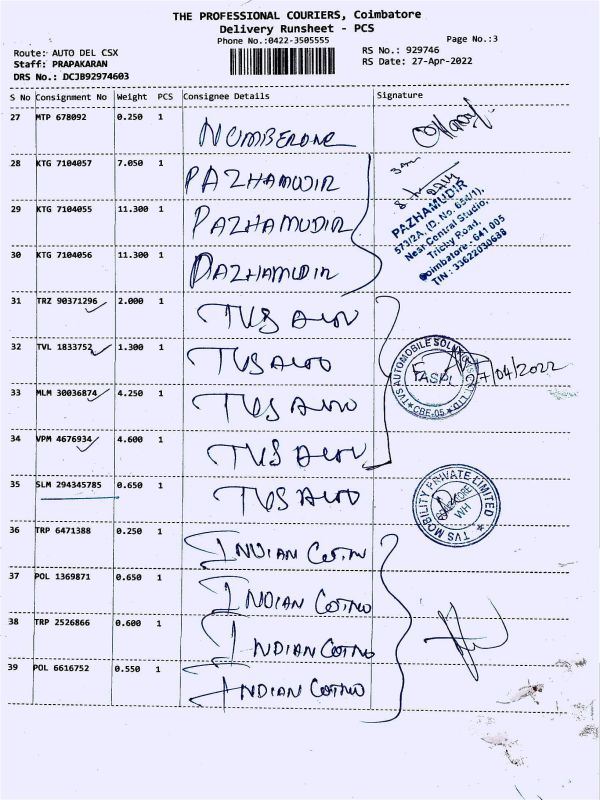 THE PROFESSIONAL COURIERS, Coimbatore
Delivery Runsheet - PCS
Phone No.:0422-3505555
Page No.:3
Route: AUTO DEL CSX
Staff: PRAPAKARAN
DRS No.: DCJB92974603
RS No.: 929746
RS Date: 27-Apr-2022
S No Consignment No Weight PCS Consignee Details Signature
27 MTP 678092 0.250 1 NUMBERONE
28 KTG 7104057 7.050 1 PAZHAMUDIR
29 KTG 7104055 11.300 1 PAZHAMUDIR
30 KTG 7104056 11.300 1 PAZHAMUDIR
PAZHAMUDIR
573/2A, (D. No. 654/1),
Near Central Studio,
Trichy Road,
Coimbatore - 641 005
TIN : 33622030688
31 TRZ 90371296 2.000 1 TVS
32 TVL 1833752 1.300 1 TVS
33 MLM 30036874 4.250 1 TVS
34 VPM 4676934 4.600 1 TVS
TVS AUTOMOBILE SOLUTIONS
FASPL
CBE-05
27/04/2022
35 SLM 294345785 0.650 1 TVS
TVS MOBILITY PRIVATE LIMITED
WH
36 TRP 6471388 0.250 1 INDIAN
37 POL 1369871 0.650 1 INDIAN
38 TRP 2526866 0.600 1 INDIAN
39 POL 6616752 0.550 1 INDIAN